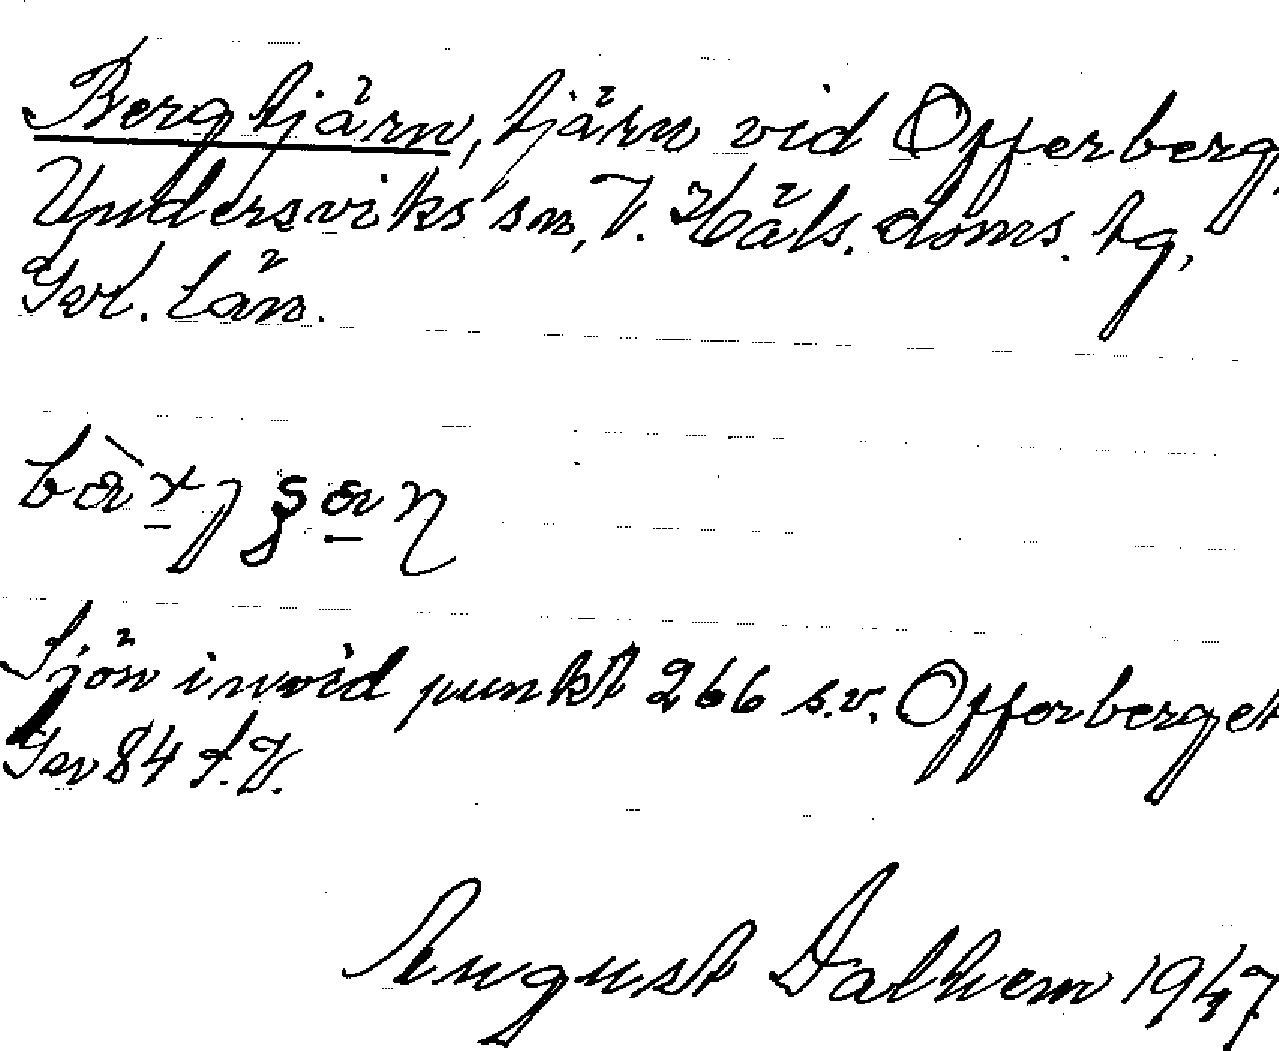 Bergtjärn, tjärn vid Offerberg,
Undersviks sn, V. Häls. doms. tg,
Gvl. län.
Sjön invid punkt 266 s.v. Offerberget
Gv 84 f.V.
August Dalhem 1947